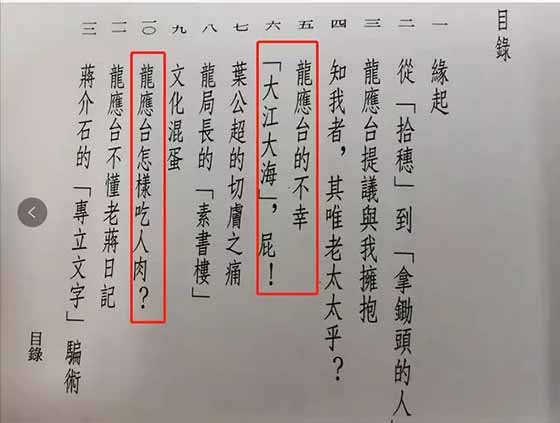 目錄
一 緣起
二 從「拾穗」到「拿鋤頭的人
三 龍應台提議與我擁抱
四 知我者，其唯老太太乎？
五 龍應台的不幸
六 「大江大海」，屁！
七 葉公超的切膚之痛
八 龍局長的「素書樓」
九 文化混蛋
一〇 龍應台怎樣吃人肉？
一一 龍應台不懂老蔣日記
一二 蔣介石的「專立文字」騙術
目錄